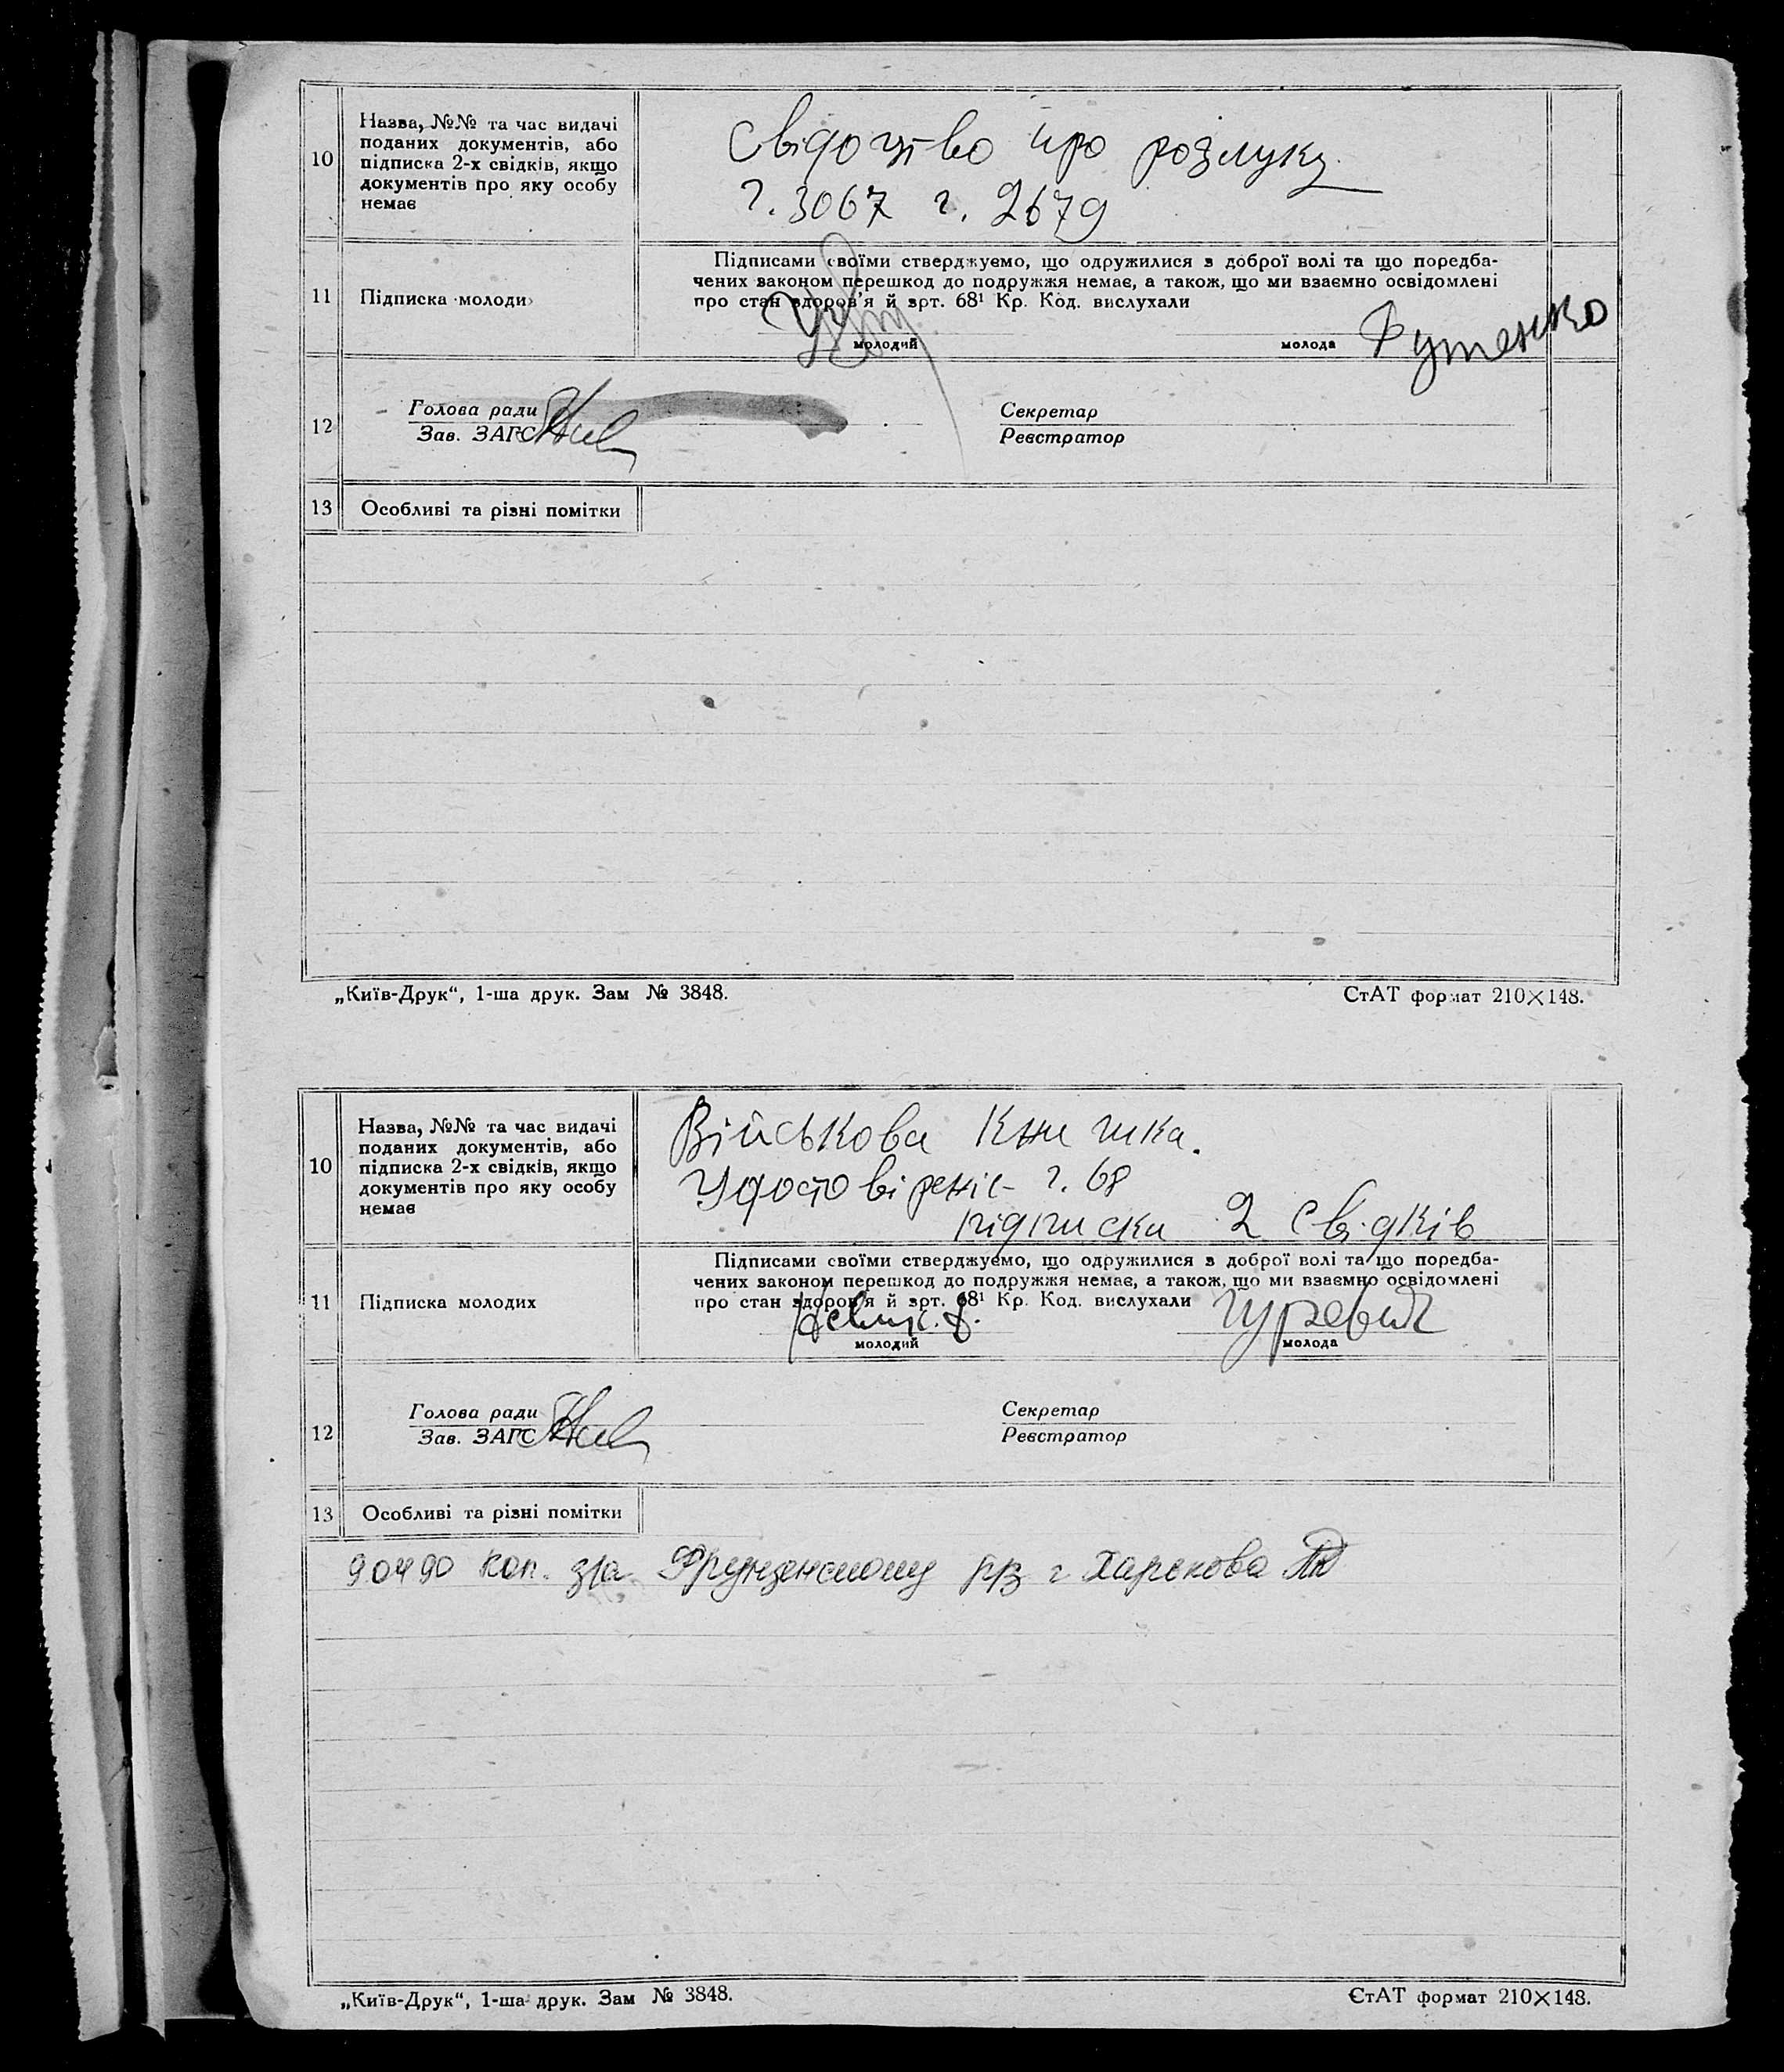 10
Назва, №№ та час видачі
поданих документів, або
підписка 2-х свідків, якщо
документів про яку особу
немає
Свідоцтво про розлуку
г. 3067 г. 2679
11
Підписка молоди
Підписами своїми стверджуємо, що одружилися з доброї волі та що поредба-
чених законом перешкод до подружжя немає, а також, що ми взаємно освідомлені
про стан здоров'я й арт. 68¹ Кр. Код. вислухали
молодий
молода
12
Голова ради
Зав. ЗАГС
Секретар
Реєстратор
13
Особливі та різні помітки
„Київ-Друк“, 1-ша друк. Зам № 3848.
СтАТ формат 210×148.
10
Назва, №№ та час видачі
поданих документів, або
підписка 2-х свідків, якщо
документів про яку особу
немає
Військова книжка.
Удостовіреніє г. 68
підписка 2 свідків
11
Підписка молодих
Підписами своїми стверджуємо, що одружилися з доброї волі та що поредба-
чених законом перешкод до подружжя немає, а також, що ми взаємно освідомлені
про стан здоров'я й арт. 68¹ Кр. Код. вислухали
молодий
Гуревич
молода
12
Голова ради
Зав. ЗАГС
Секретар
Реєстратор
13
Особливі та різні помітки
коп. Фрунзенскому г Харькова
„Київ-Друк“, 1-ша друк. Зам № 3848.
СтАТ формат 210×148.